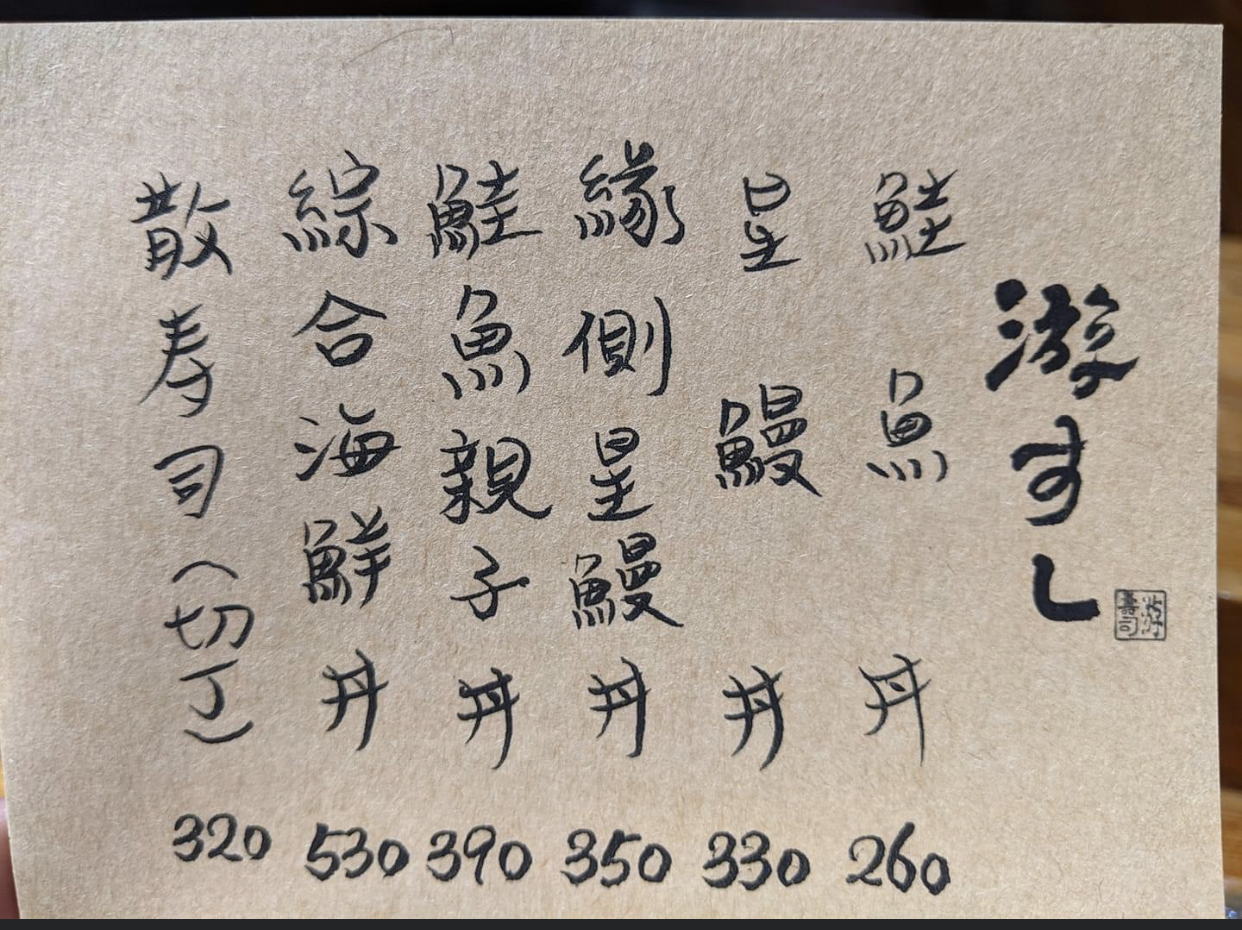 游すし
游壽司
鮭魚丼 260
星鰻丼 330
緣側星鰻丼 350
鮭魚親子丼 390
綜合海鮮丼 530
散寿司(切丁) 320